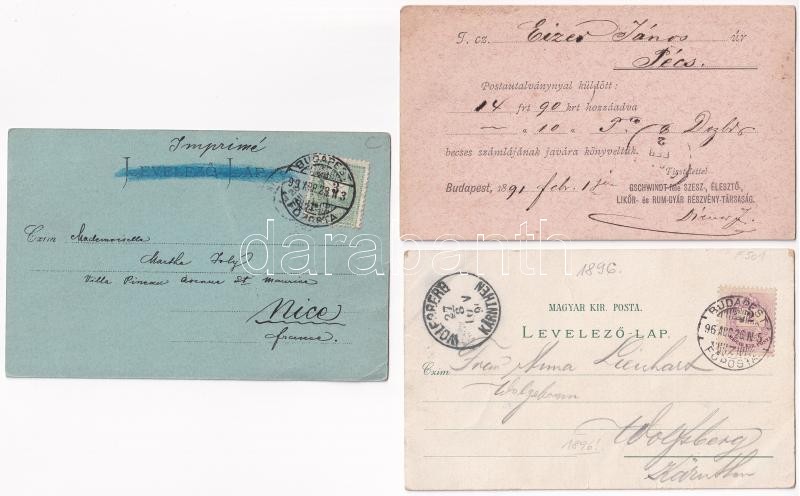 Imprimé
LEVELEZŐ-LAP
BUDAPEST
FŐPOSTA
Czim Mademoiselle
Martha Joly
Villa Pineau Avenue St Maurice
Nice
France.
C
T. cz. Eizer János úr
Pécs.
Postautalványnyal küldött:
14 frt 90 krt hozzáadva
10
becses számlájának javára könyveltük.
Tisztelettel
Budapest, 1891 febr. 18
GSCHWINDT-féle SZESZ-, ÉLESZTŐ-,
LIKŐR- és RUM-GYÁR RÉSZVÉNY-TÁRSASÁG.
1896.
WOLFSBERG
KÄRNTHEN
27 8
MAGYAR KIR. POSTA.
LEVELEZŐ-LAP.
BUDAPEST
96 AUG 26 N 5
FŐPOSTA
Czim Anna Lienhart
Wolfsberg
Kärnthen
1896!
darabanth